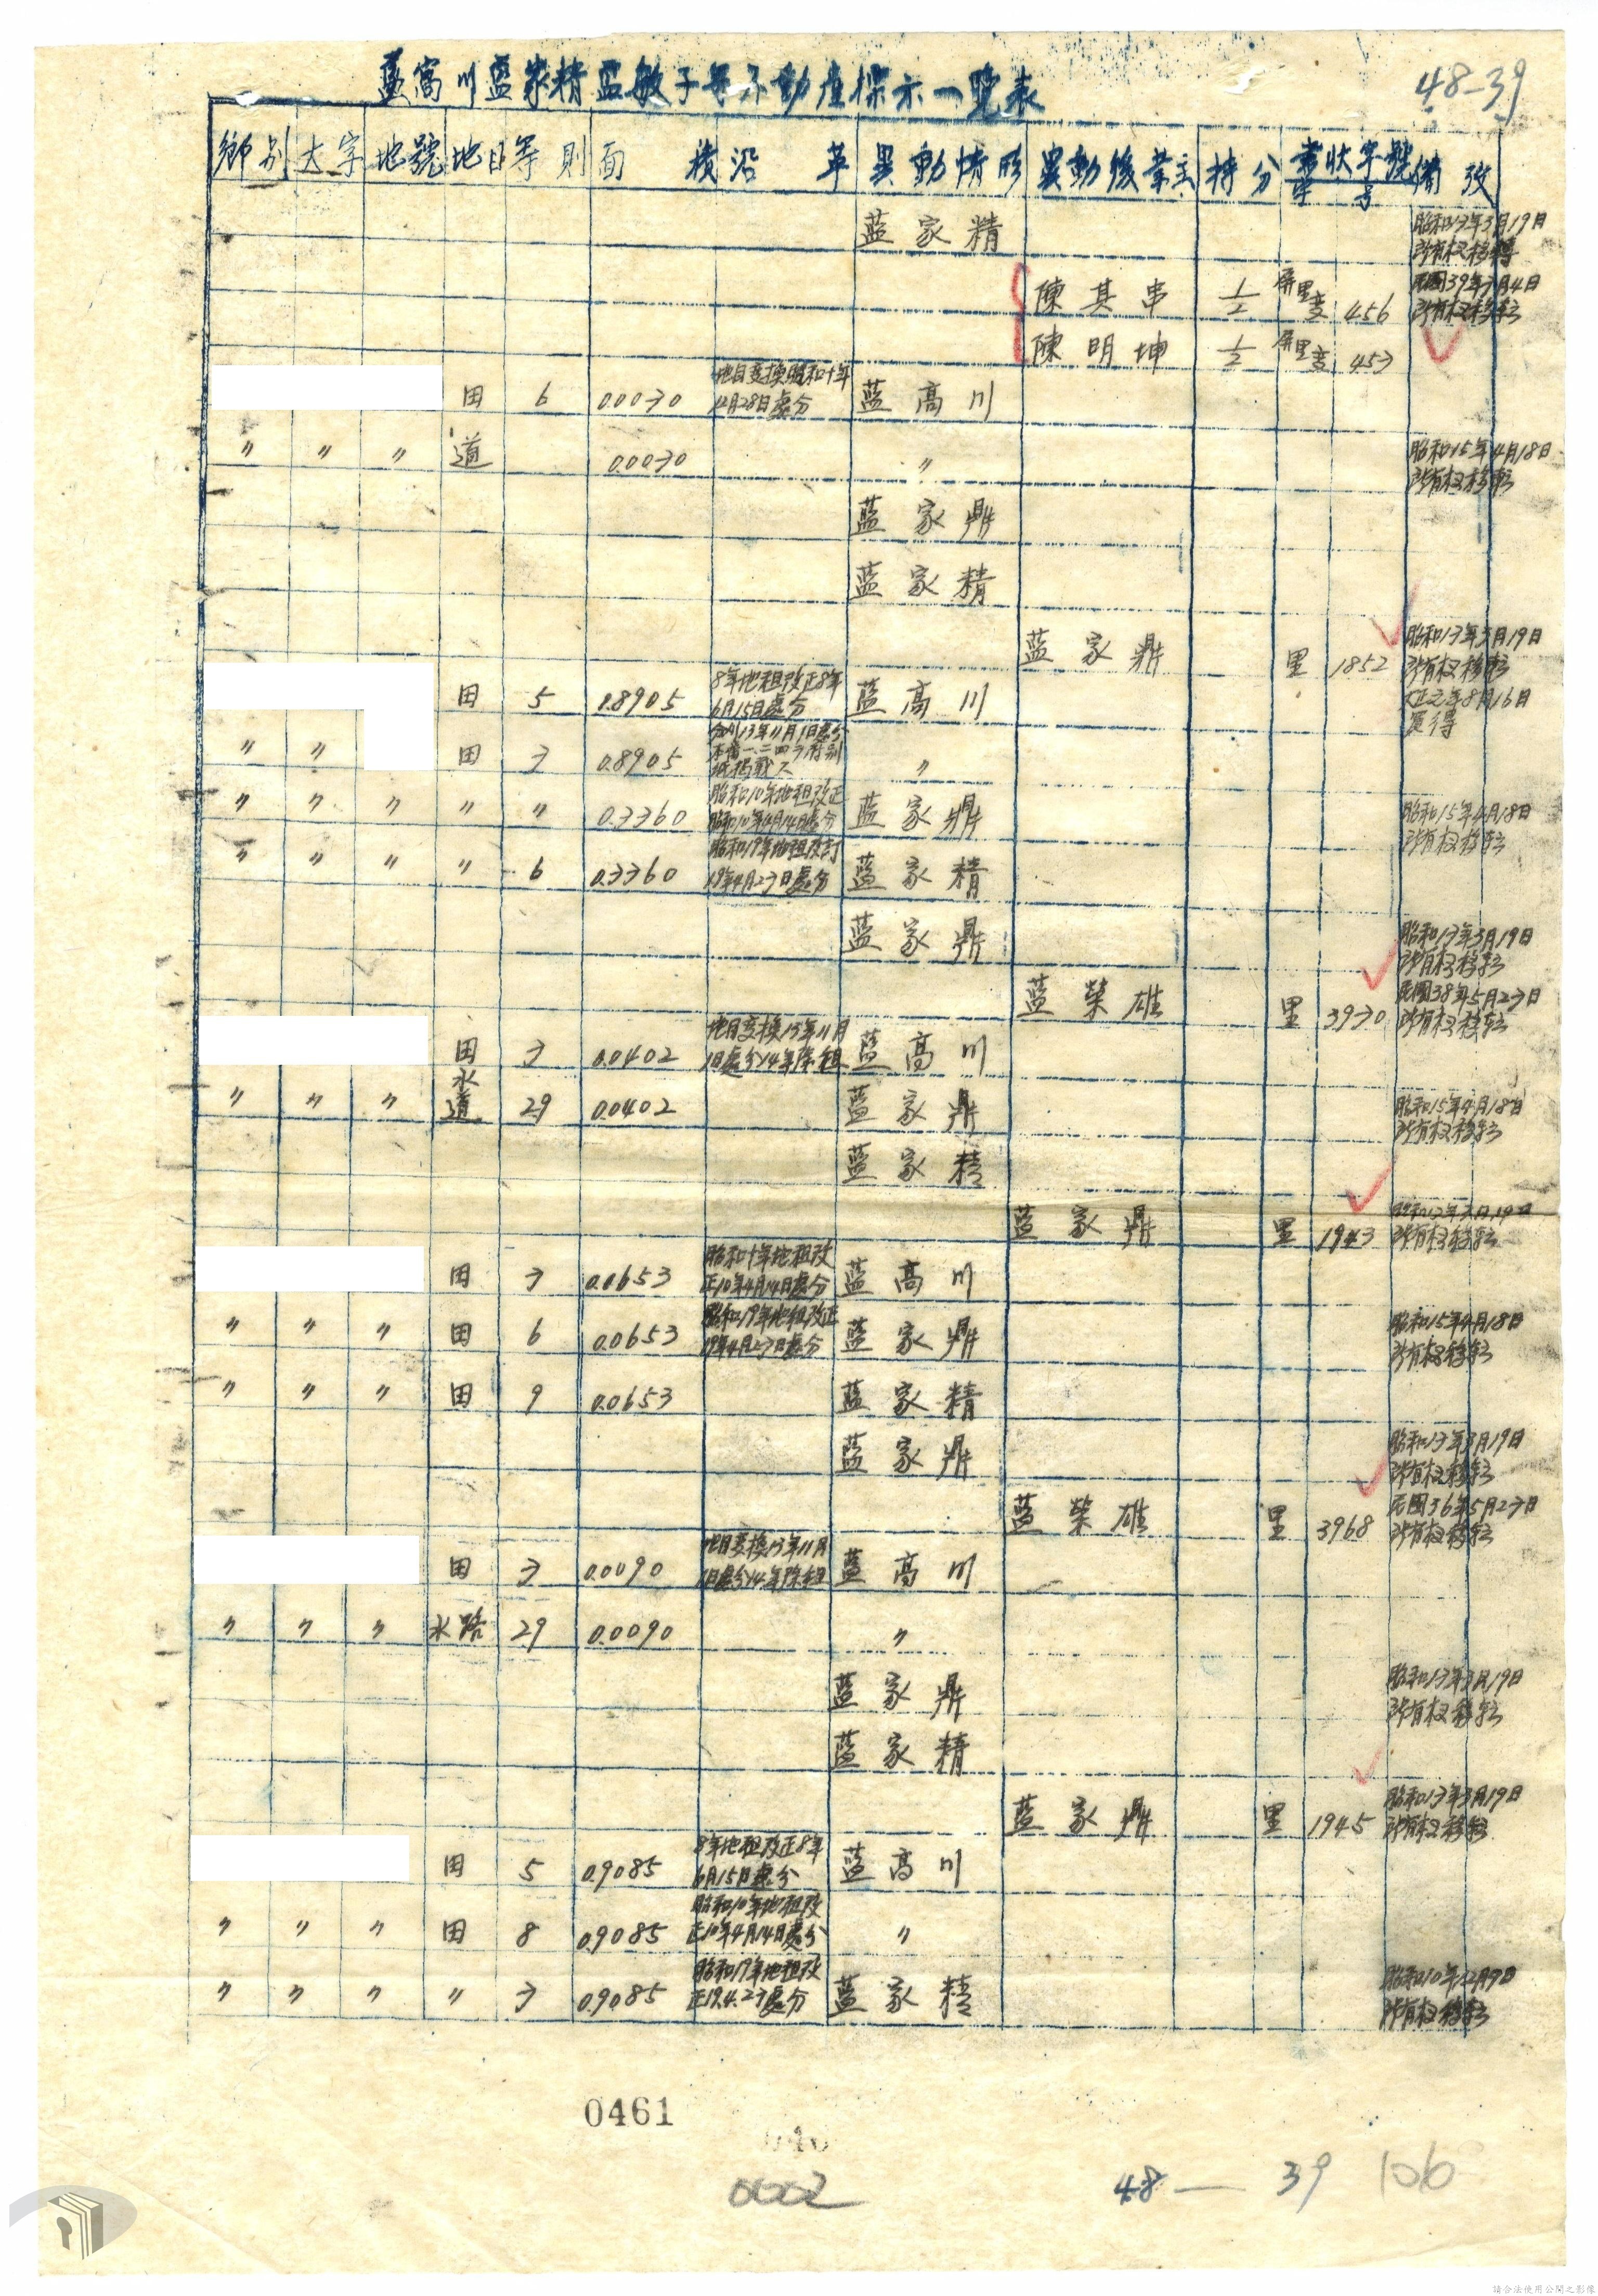 藍高川藍家精藍敏子等不動產標示一覽表
48-39
鄉別 大字 地號 地目 等則 面積 沿革 異動情形 異動後業主 持分 書狀字號 備攷
字 号
藍家精 昭和13年3月19日
所有权移轉
陳其串 1/2 屏里变 456 民國39年3月4日
所有权移轉
陳明坤 1/2 屏里变 453
田 6 0.0030 地目变換昭和十年 藍高川
12月28日處分
〃 〃 〃 道 0.0030 〃 昭和15年4月18日
所有权移轉
藍家鼎
藍家精
藍家鼎 里 1852 昭和13年3月19日
所有权移轉
田 5 0.8905 8年地租改正8年 藍高川 大正元年8月16日
6月15日處分 買得
〃 〃 田 3 0.8905 分外13年11月1日處分 〃
〃 〃 〃 〃 〃 0.3360 昭和10年地租改正 藍家鼎 昭和15年4月18日
昭和10年4月14日處分 所有权移轉
〃 〃 〃 〃 6 0.3360 昭和19年地租改訂 藍家精
19年4月23日處分
藍家鼎 昭和13年3月19日
所有权移轉
藍榮雄 里 3930 民國38年5月23日
所有权移轉
田 3 0.0402 地目变換13年11月 藍高川
1日處分14年除租
〃 〃 〃 水道 29 0.0402 藍家鼎 昭和15年4月18日
所有权移轉
藍家精
藍家鼎 里 1943 昭和13年3月19日
所有权移轉
田 3 0.0653 昭和十年地租改 藍高川
正10年4月14日處分
〃 〃 〃 田 6 0.0653 昭和19年地租改正 藍家鼎 昭和15年4月18日
19年4月23日處分 所有权移轉
〃 〃 〃 田 9 0.0653 藍家精
藍家鼎 昭和13年3月19日
所有权移轉
藍榮雄 里 3968 民國36年5月23日
所有权移轉
田 3 0.0090 地目变換13年11月 藍高川
1日處分14年除租
〃 〃 〃 水路 29 0.0090 〃
藍家鼎 昭和13年3月19日
所有权移轉
藍家精
藍家鼎 里 1945 昭和13年3月19日
所有权移轉
田 5 0.9085 8年地租改正8年 藍高川
6月15日處分
〃 〃 〃 田 8 0.9085 昭和10年地租改 〃
正10年4月14日處分
〃 〃 〃 〃 3 0.9085 昭和19年地租改 藍家精 昭和10年12月9日
正19.4.23處分 所有权移轉
0461
0002
48—39 106
請合法使用公開之影像